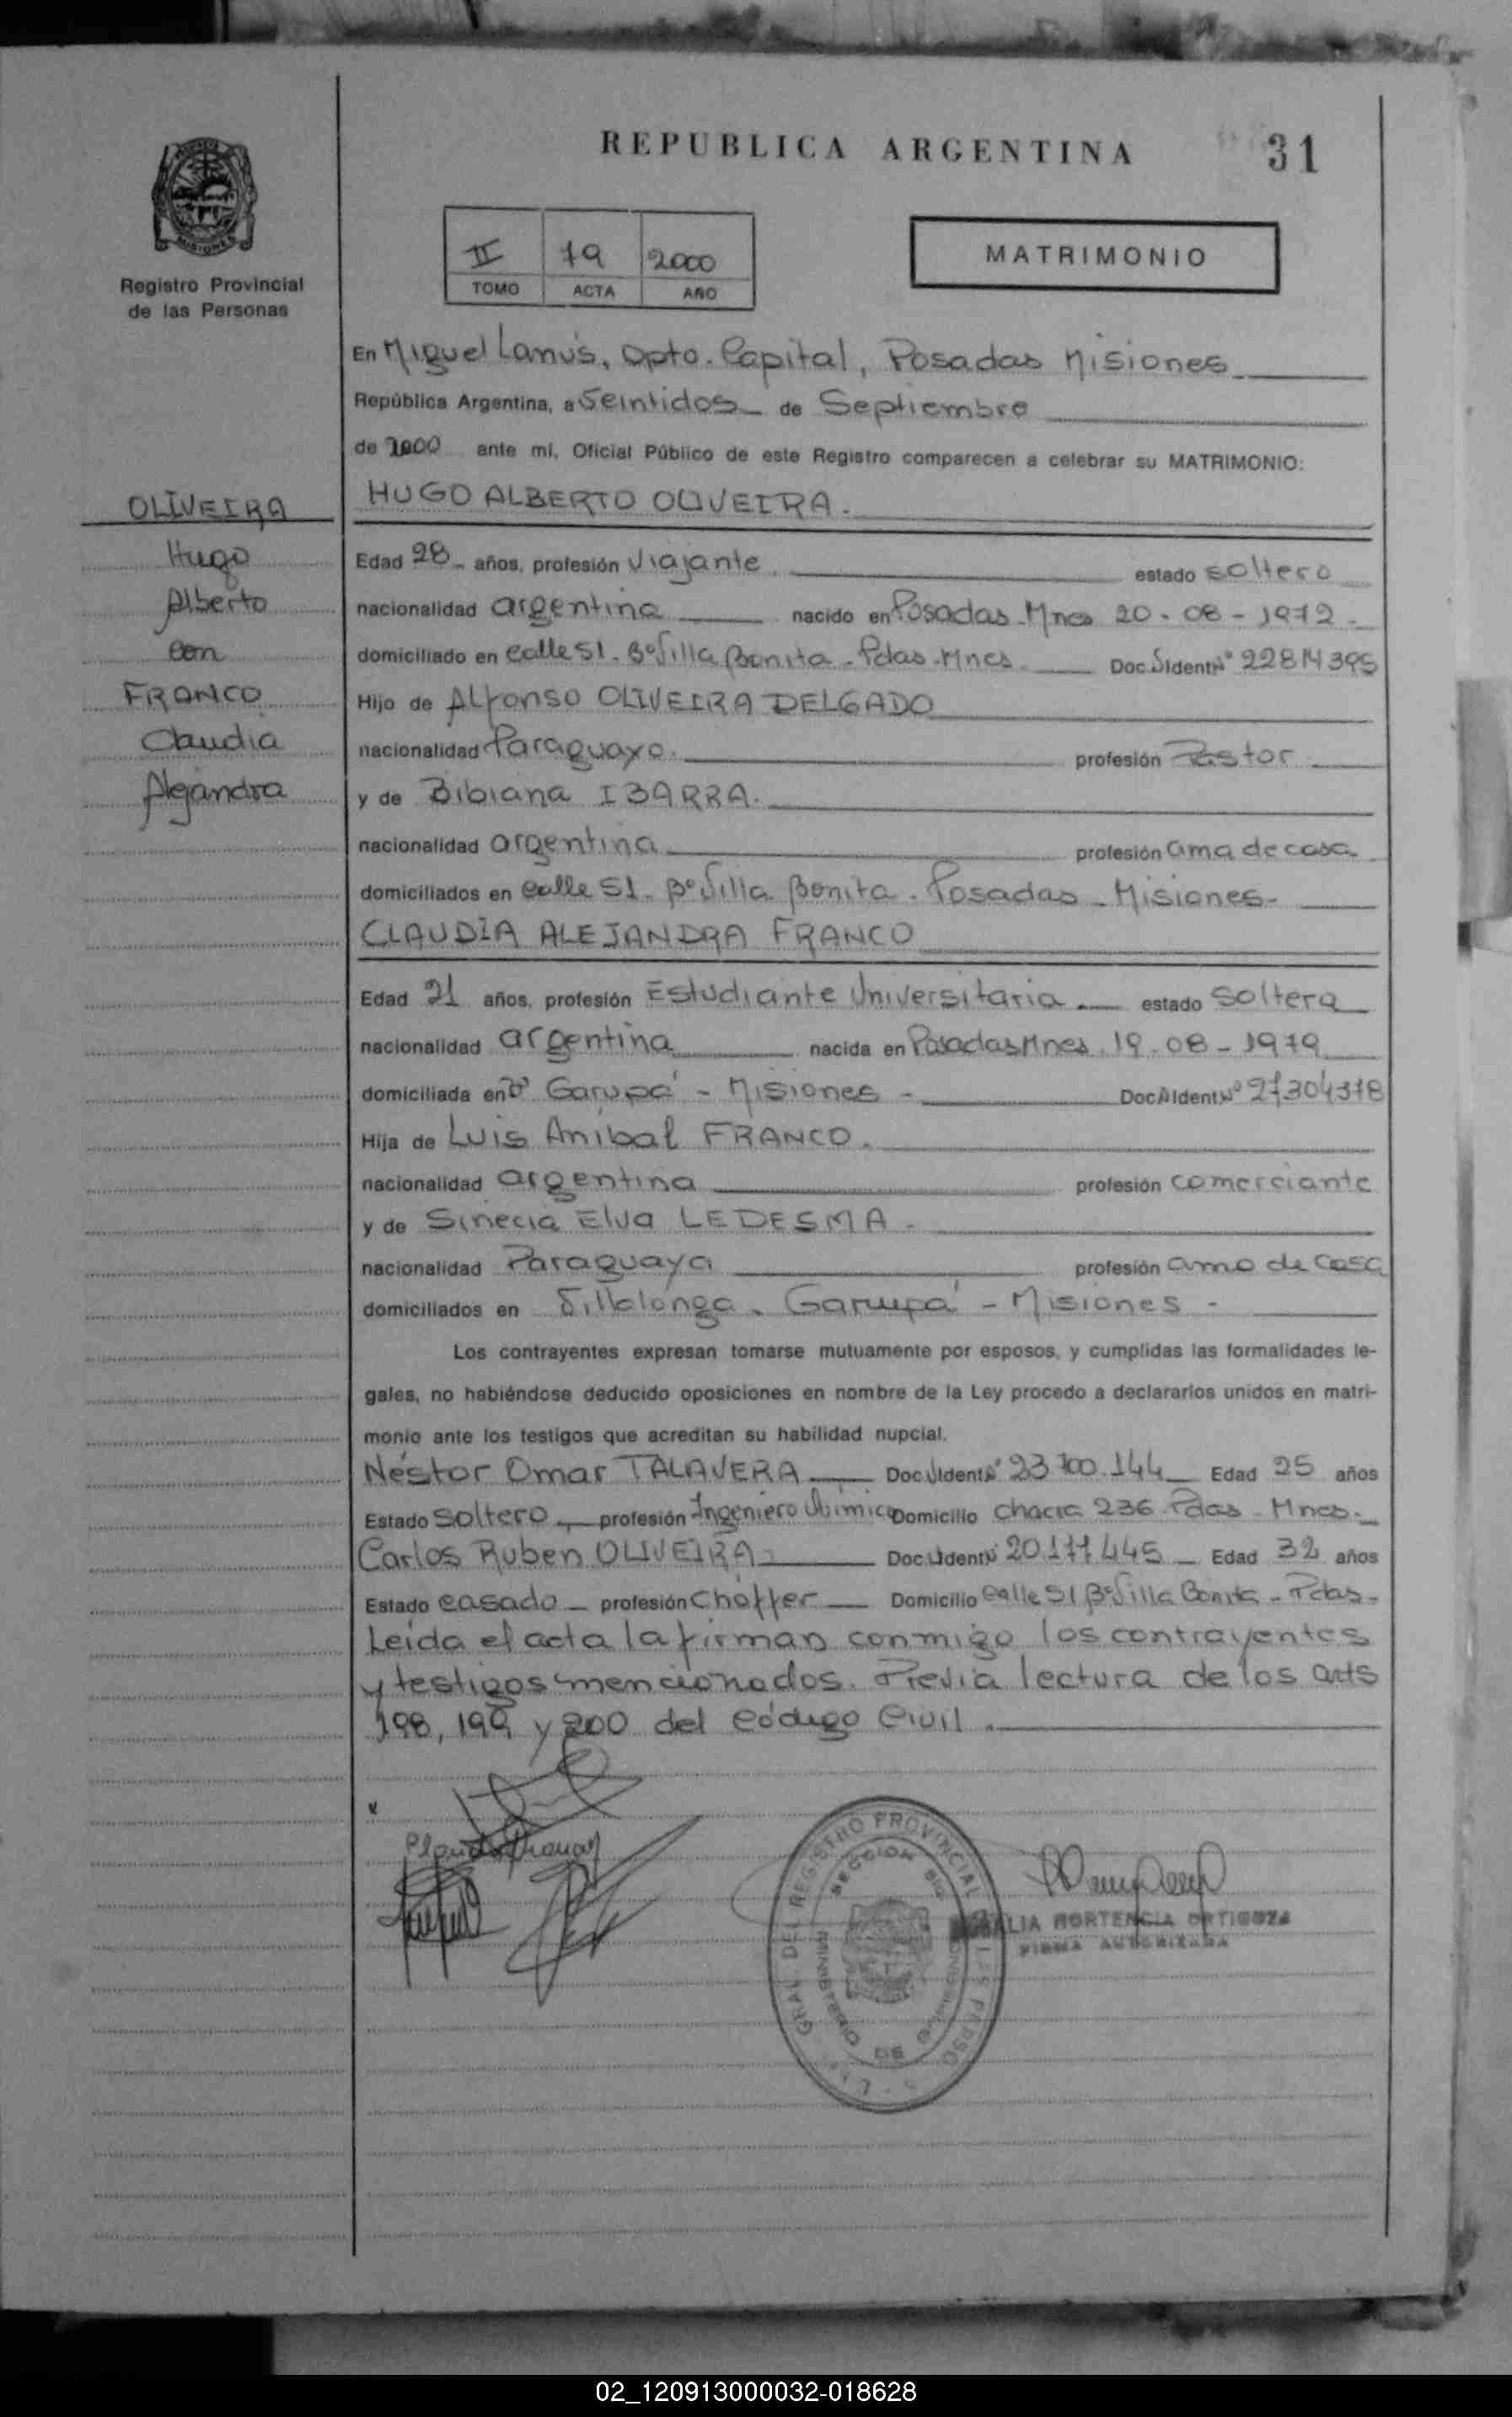 REPUBLICA ARGENTINA
31
Registro Provincial
de las Personas
II 79 2000
TOMO ACTA AÑO
MATRIMONIO
En Miguel Lanús, Dpto. Capital, Posadas Misiones
República Argentina, a Veintidos de Septiembre
de 2000 ante mí, Oficial Público de este Registro comparecen a celebrar su MATRIMONIO:
HUGO ALBERTO OLIVEIRA.
OLIVEIRA
Hugo
Alberto
con
FRANCO
Claudia
Alejandra
Edad 28 años, profesión Viajante estado soltero
nacionalidad argentina nacido en Posadas Mnes 20-08-1972
domiciliado en calle 51. Bº Villa Bonita. Pdas. Mnes. Doc. Ident Nº 22814395
Hijo de Alfonso OLIVEIRA DELGADO
nacionalidad Paraguayo. profesión Pastor
y de Bibiana IBARRA.
nacionalidad argentina profesión ama de casa
domiciliados en calle 51. Bº Villa Bonita. Posadas - Misiones-
CLAUDIA ALEJANDRA FRANCO
Edad 21 años, profesión Estudiante Universitaria estado Soltera
nacionalidad argentina nacida en Posadas Mnes. 19-08-1979
domiciliada en Garupá - Misiones - Doc. Ident Nº 27304378
Hija de Luis Anibal FRANCO.
nacionalidad argentina profesión comerciante
y de Sinecia Elva LEDESMA.
nacionalidad Paraguaya profesión ama de casa
domiciliados en Villalonga. Garupá - Misiones -
Los contrayentes expresan tomarse mutuamente por esposos, y cumplidas las formalidades le-
gales, no habiéndose deducido oposiciones en nombre de la Ley procedo a declararlos unidos en matri-
monio ante los testigos que acreditan su habilidad nupcial.
Néstor Omar TALAVERA Doc. Ident Nº 23700.144 Edad 25 años
Estado Soltero profesión Ingeniero Químico Domicilio chacra 236 Pdas - Mnes.
Carlos Ruben OLIVEIRA Doc. Ident Nº 20177445 Edad 32 años
Estado casado profesión Choffer Domicilio calle 51 Bº Villa Bonita - Pdas -
Leída el acta la firman conmigo los contrayentes
y testigos mencionados. Previa lectura de los arts
198, 199 y 200 del Código Civil.
HORTENCIA ORTIGOZA
FIRMA AUTORIZADA
GRAL. DEL REGISTRO PROVINCIAL
02_120913000032-018628